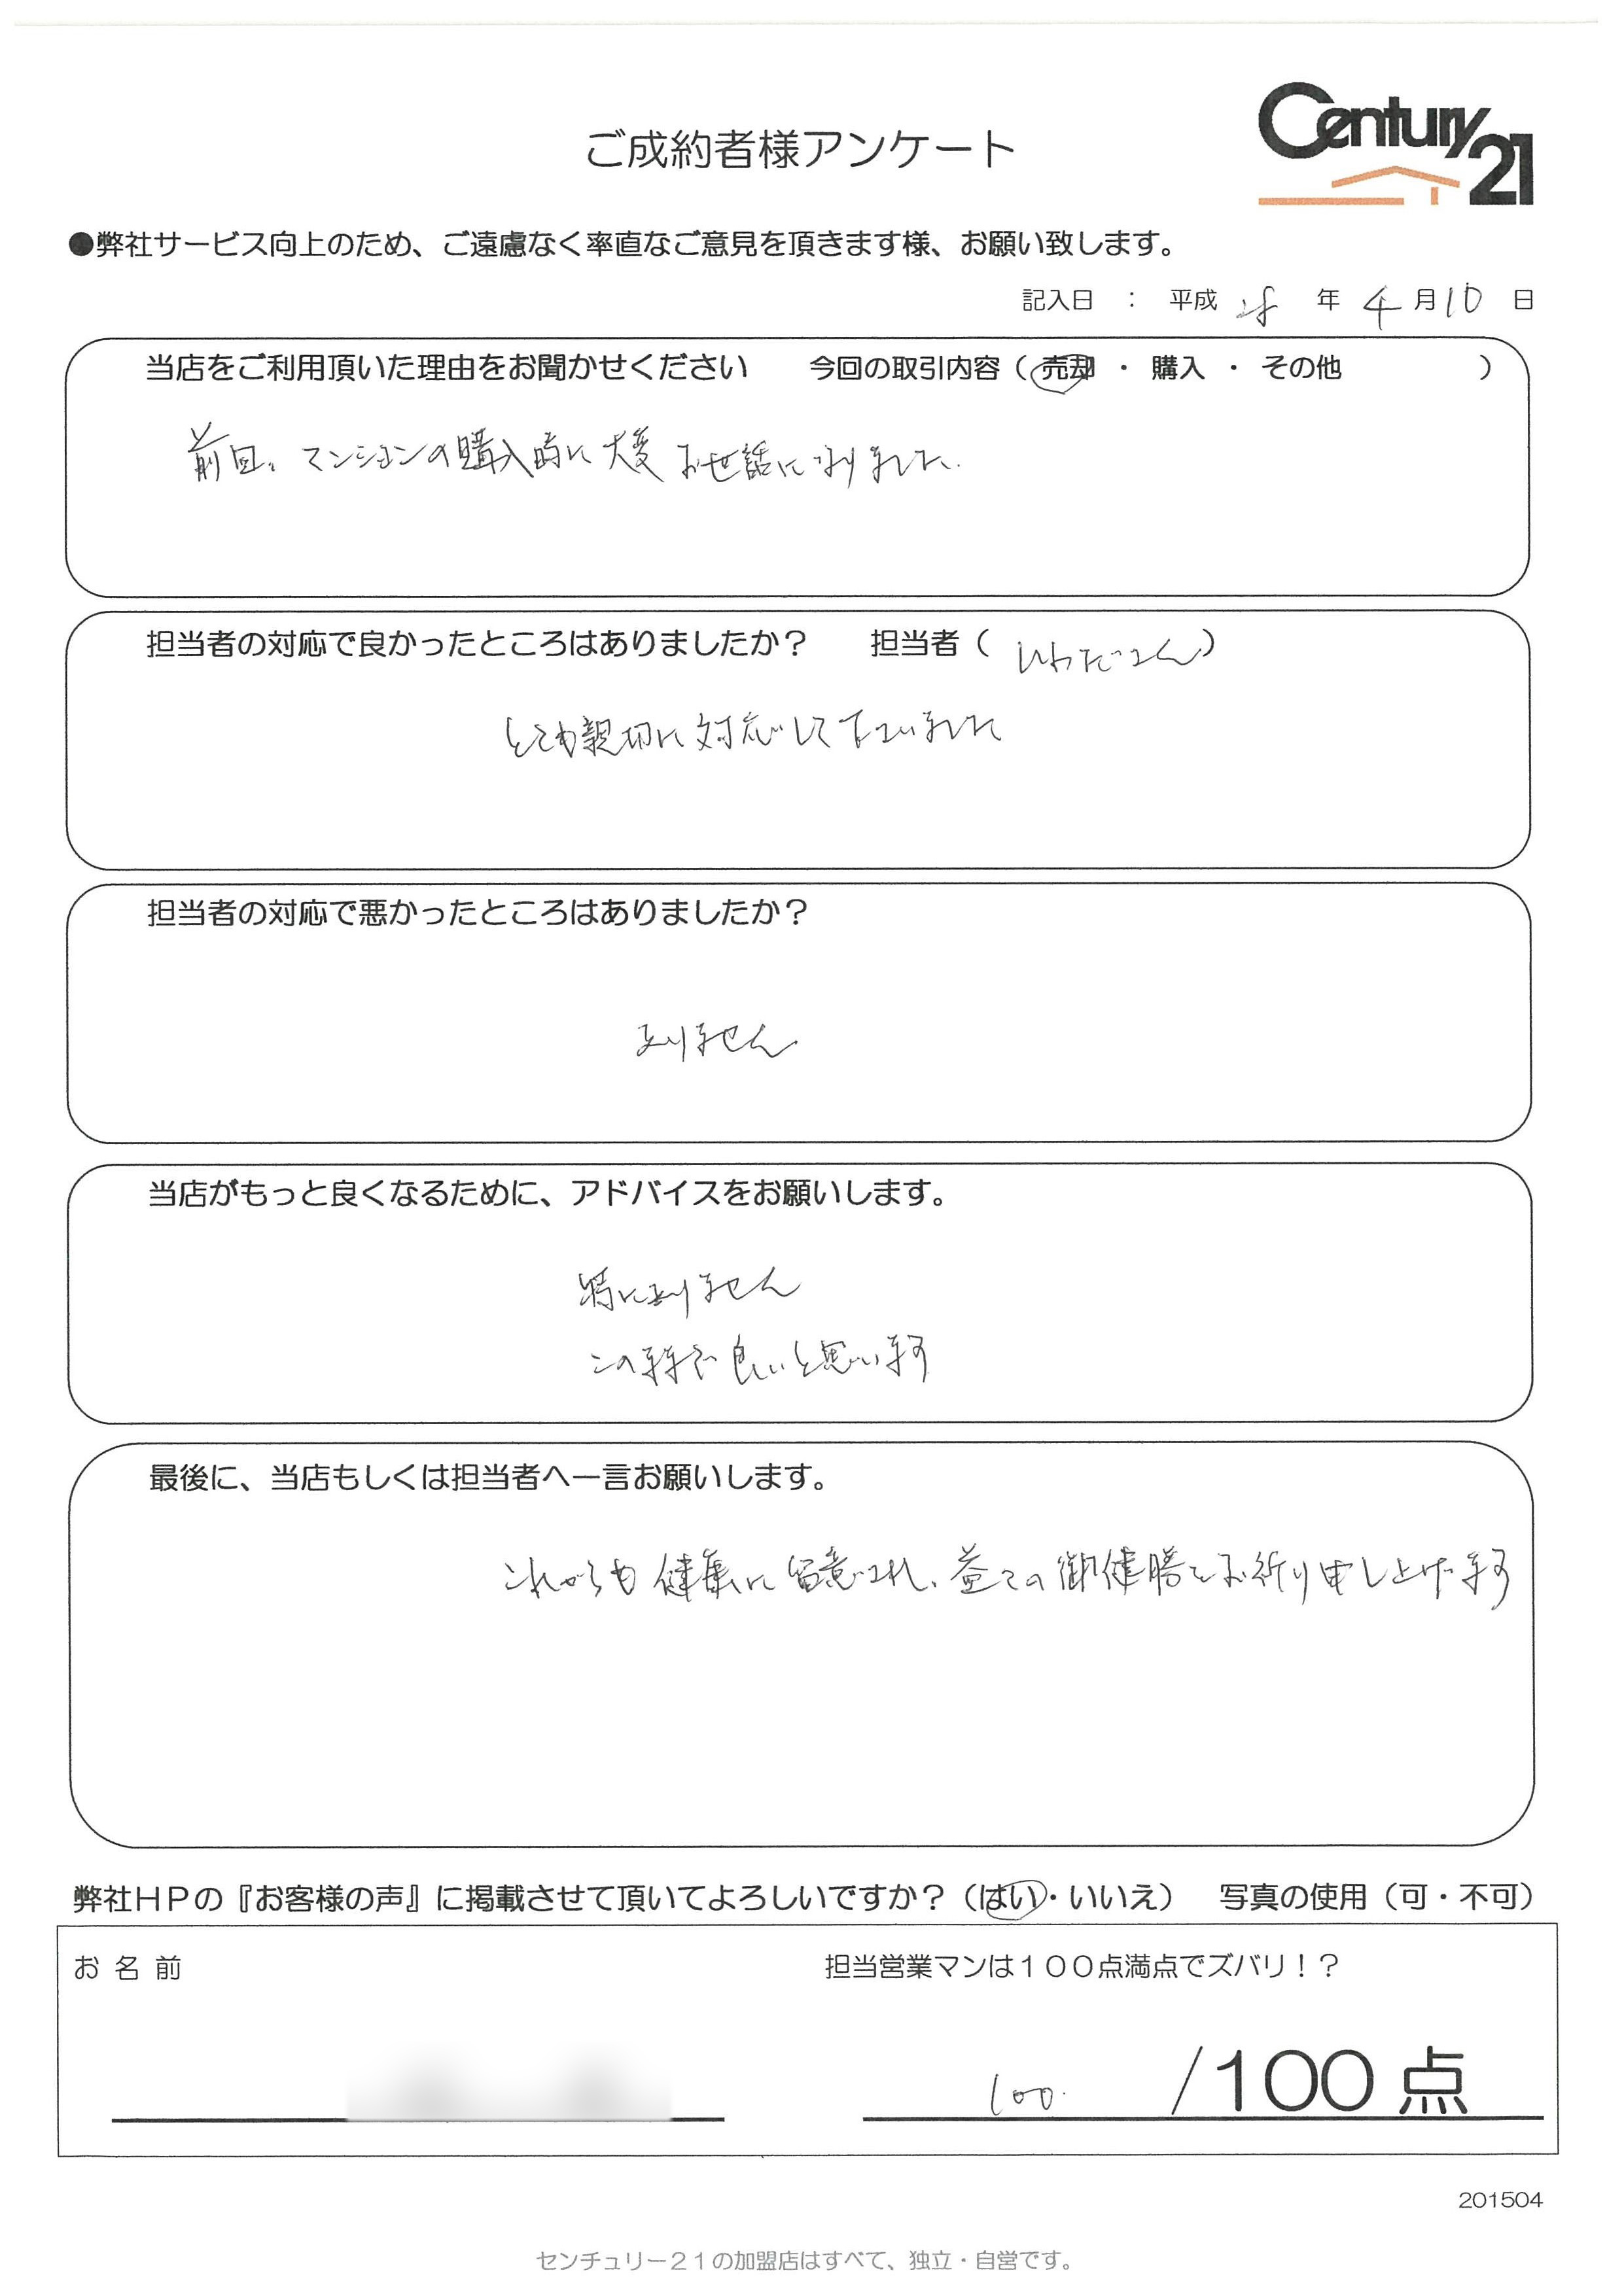 Century 21
ご成約者様アンケート
●弊社サービス向上のため、ご遠慮なく率直なご意見を頂きます様、お願い致します。
記入日 : 平成 28 年 4 月 10 日
当店をご利用頂いた理由をお聞かせください 今回の取引内容（ 売却 ・ 購入 ・ その他 ）
前回、マンションの購入時に大変お世話になりました。
担当者の対応で良かったところはありましたか？ 担当者（ いわださん ）
とても親切に対応して下さいました
担当者の対応で悪かったところはありましたか？
ありません
当店がもっと良くなるために、アドバイスをお願いします。
特にありません
このままで良いと思います
最後に、当店もしくは担当者へ一言お願いします。
これからも健康に留意され、益々の御健勝をお祈り申し上げます
弊社ＨＰの『お客様の声』に掲載させて頂いてよろしいですか？（はい・いいえ） 写真の使用（可・不可）
お 名 前 担当営業マンは１００点満点でズバリ！？
100 /100 点
201504
センチュリー２１の加盟店はすべて、独立・自営です。